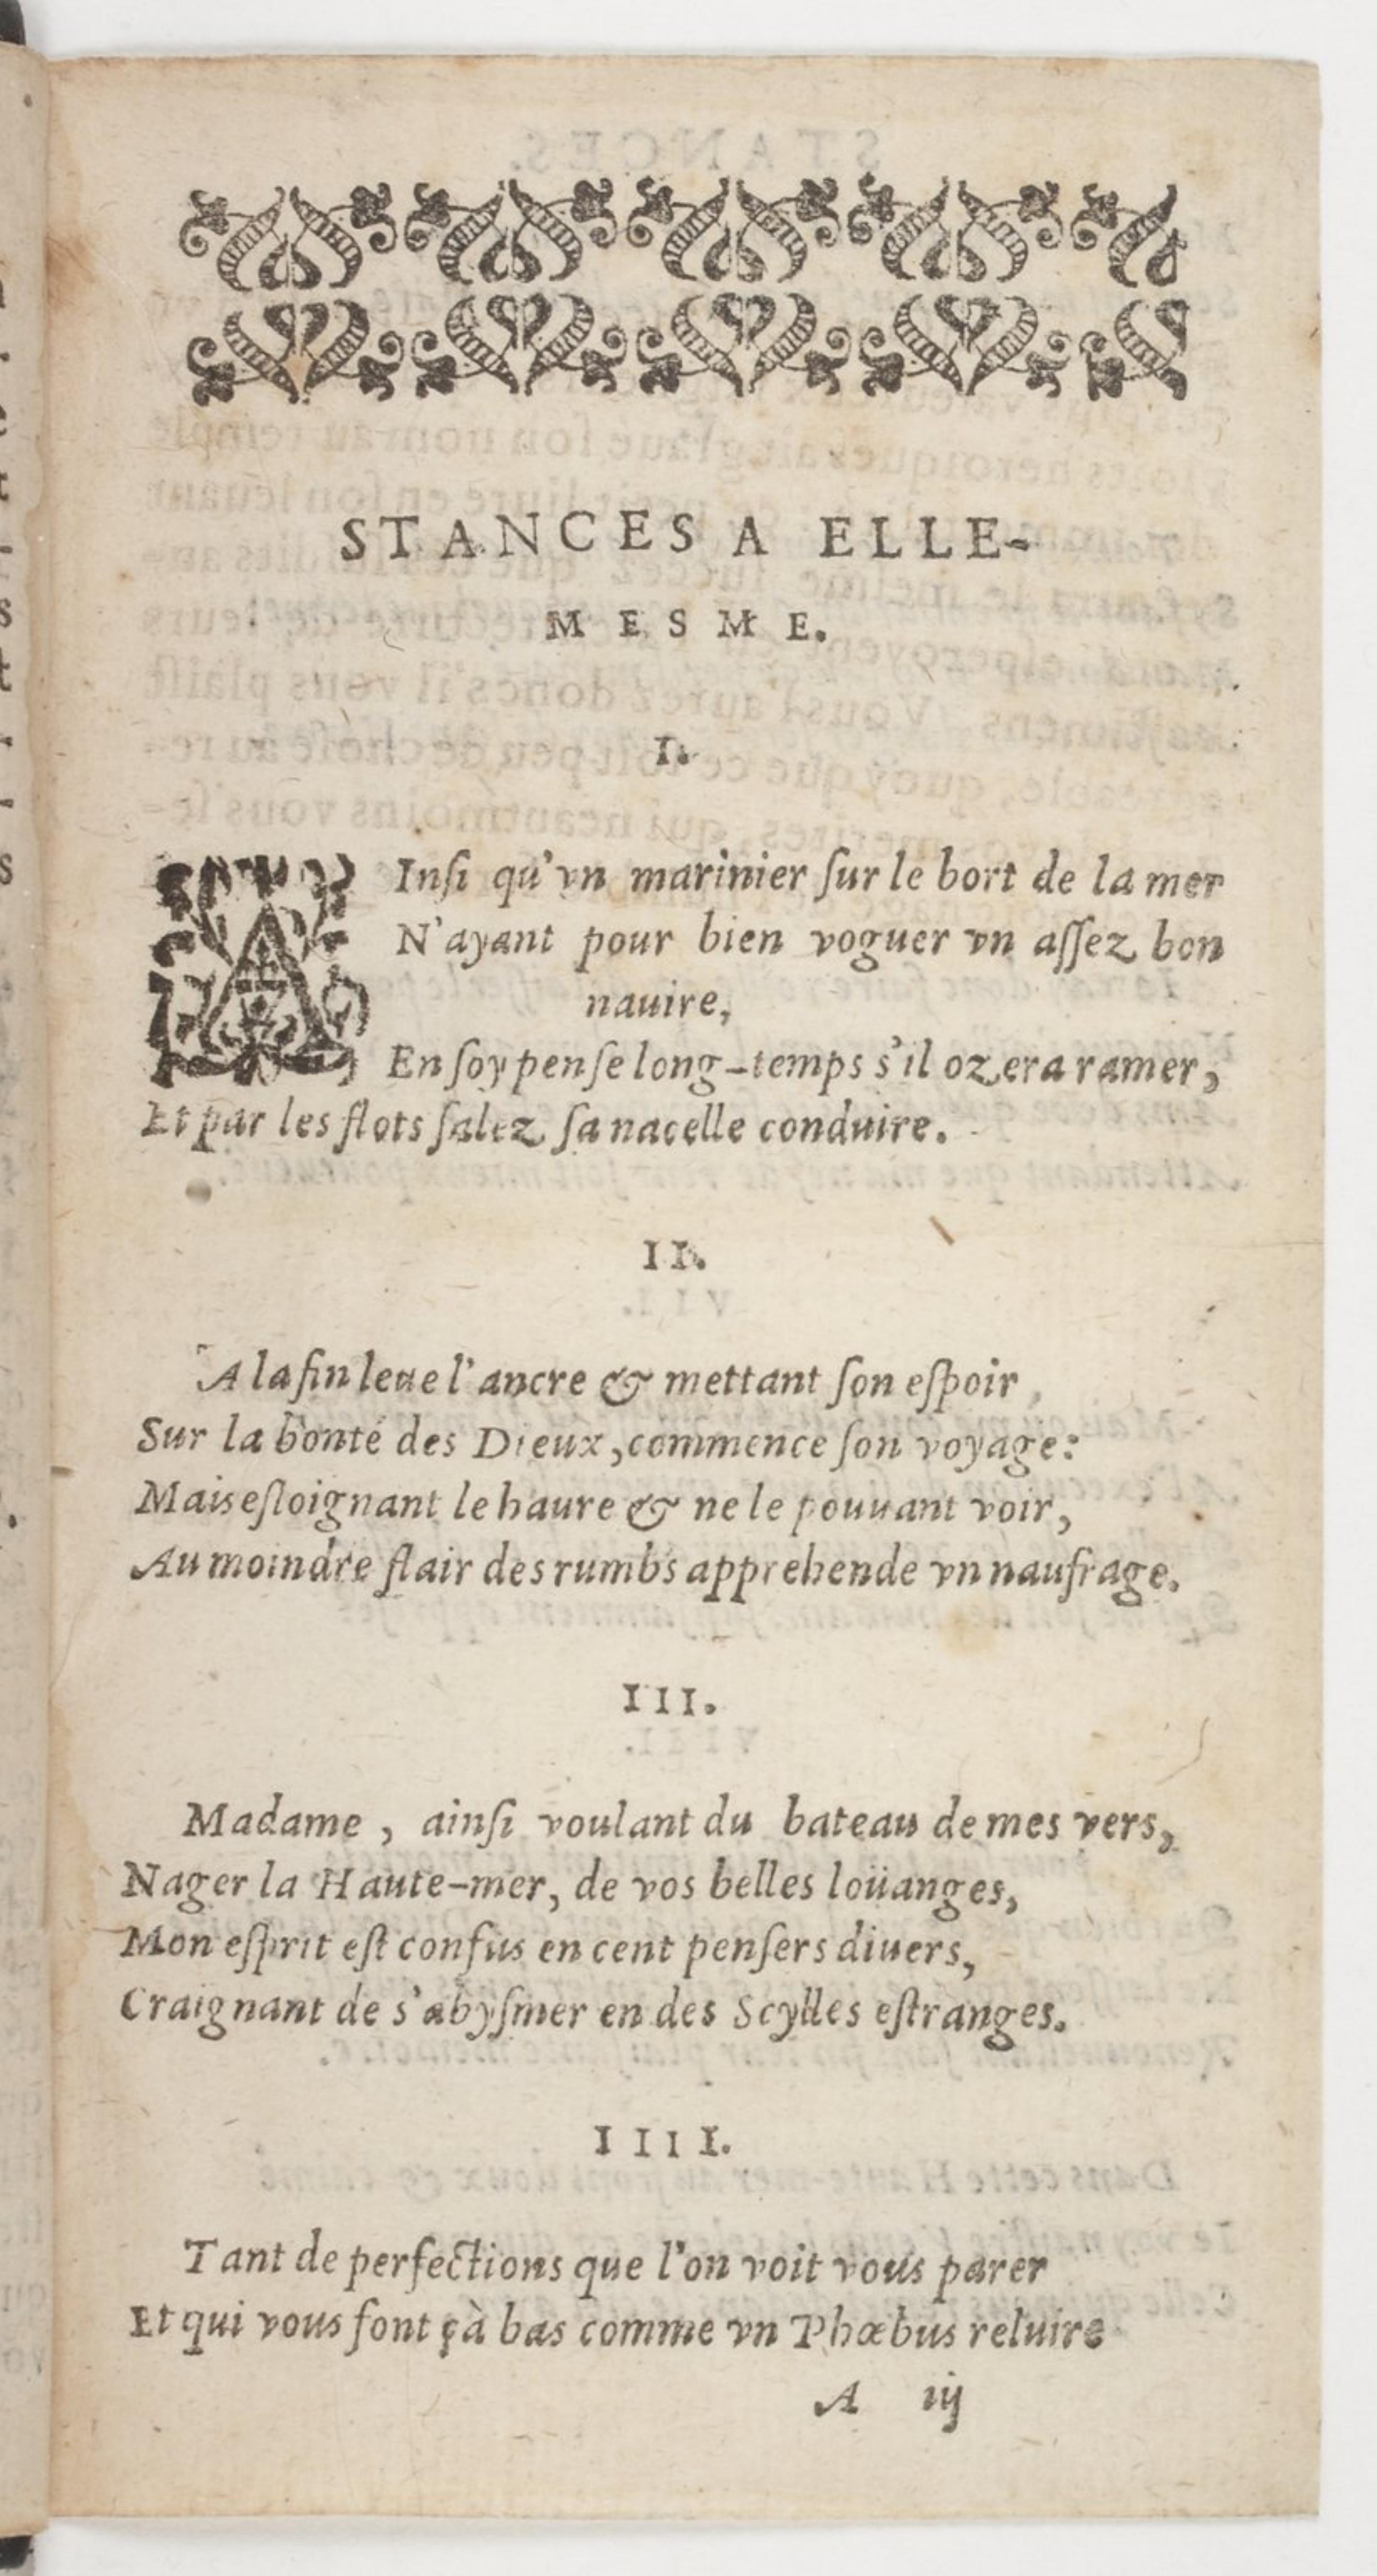 STANCES A ELLE-
MESME.
I.
AInſi qu'vn marinier ſur le bort de la mer
N'ayant pour bien voguer vn aſſez bon
nauire,
En ſoy penſe long-temps s'il ozera ramer,
Et par les flots ſalez ſa nacelle conduire.
II.
A la fin leue l'ancre & mettant ſon eſpoir
Sur la bonté des Dieux, commence ſon voyage:
Mais eſloignant le haure & ne le pouuant voir,
Au moindre flair des rumbs apprehende vn naufrage.
III.
Madame, ainſi voulant du bateau de mes vers,
Nager la Haute-mer, de vos belles loüanges,
Mon eſprit eſt confus en cent penſers diuers,
Craignant de s'abyſmer en des Scylles eſtranges.
IIII.
Tant de perfections que l'on voit vous parer
Et qui vous font çà bas comme vn Phœbus reluire
A iij